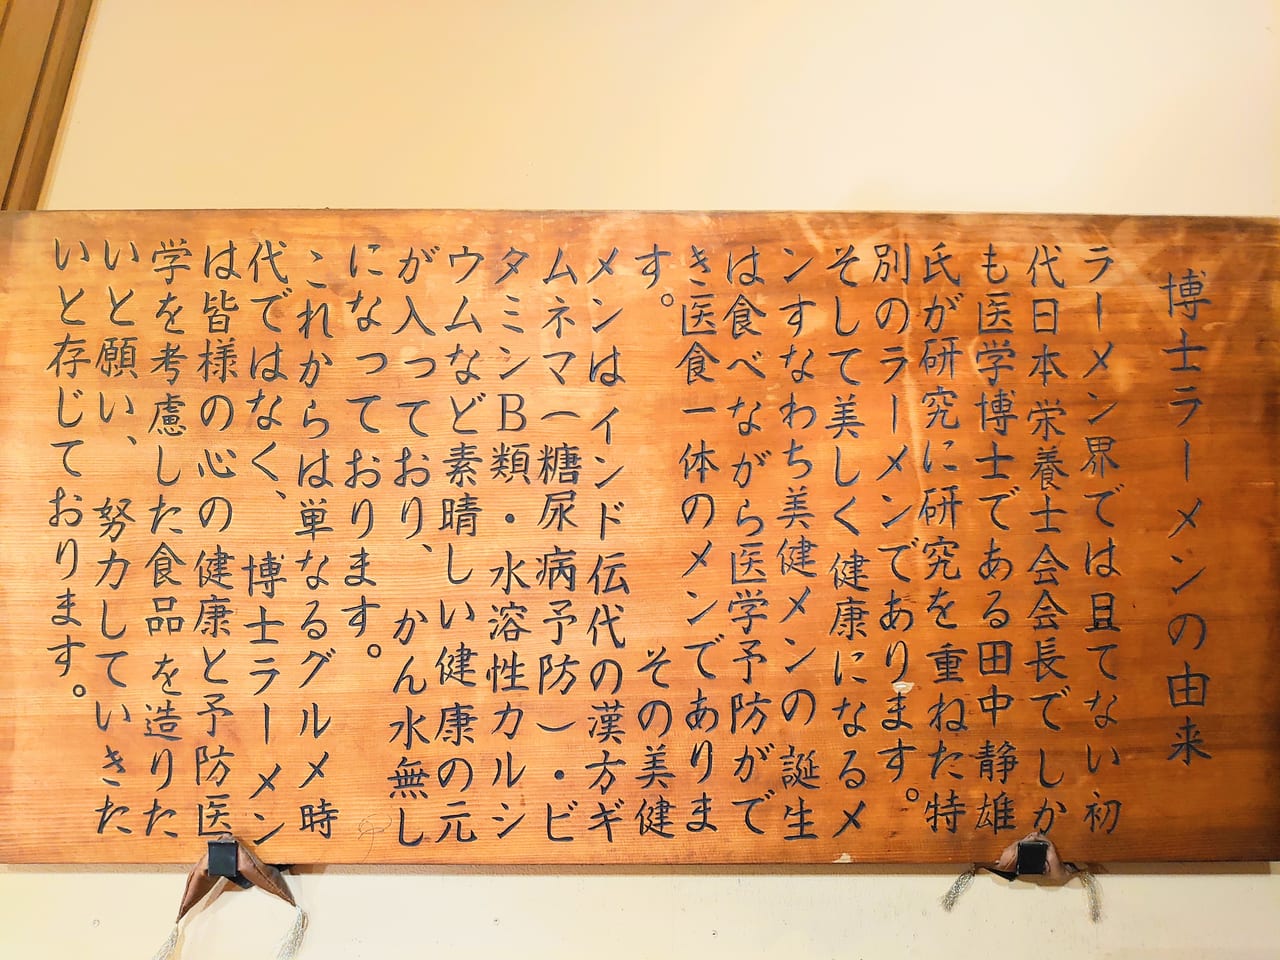 博士ラーメンの由来
ラーメン界では且てない初
代日本栄養士会会長でしか
も医学博士である田中静雄
氏が研究に研究を重ねた特
別のラーメンであります。
そして美しく健康になるメ
ンすなわち美健メンの誕生
は食べながら医学予防がで
き医食一体のメンでありま
す。　　　　　　その美健
メンはインド伝代の漢方ギ
ムネマ（糖尿病予防）・ビ
タミンB類・水溶性カルシ
ウムなど素晴しい健康の元
が入っており、かん水無し
になっております。
これからは単なるグルメ時
代ではなく、博士ラーメン
は皆様の心の健康と予防医
学を考慮した食品を造りた
いと願い、努力していきた
いと存じております。